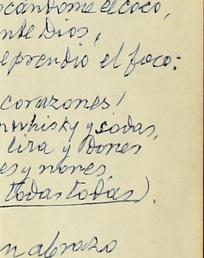 ocándome el coco,
nte Dios,
e prendió el foco:
corazones!
n whisky y sodas,
lira y Dones
es y nones,
todas todas).
n abrazo